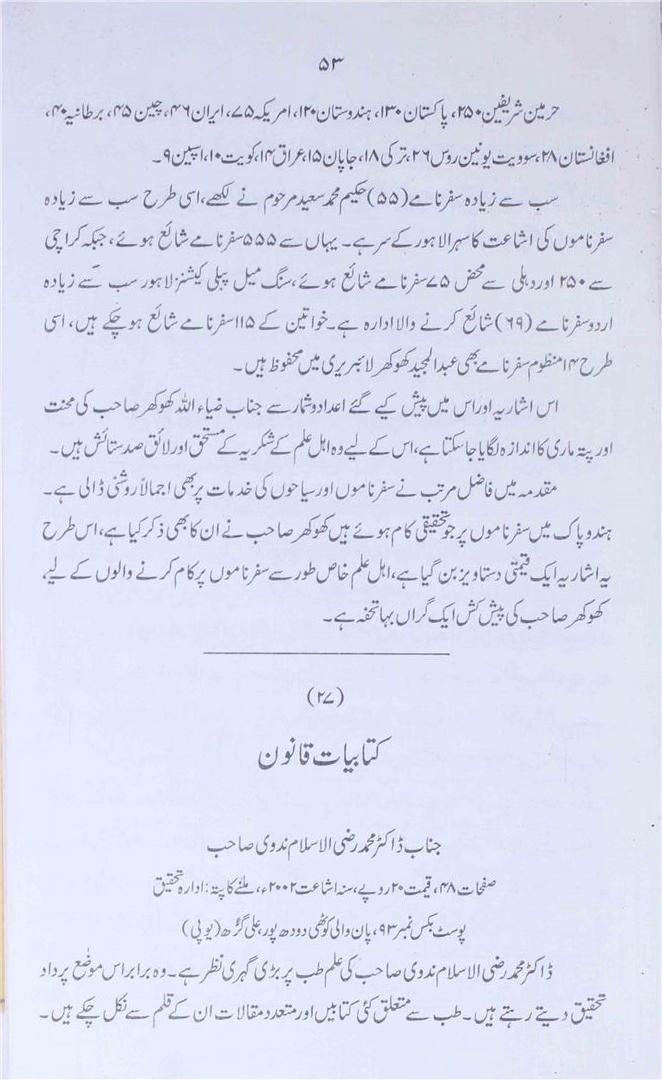 ۵۳
حرمین شریفین ۲۵۰، پاکستان ۱۳۰، ہندوستان ۱۲۰، امریکہ ۷۵، ایران ۴۶، چین ۴۵، برطانیہ ۴۰،
افغانستان ۲۸، سوویت یونین روس ۲۶، ترکی ۱۸، جاپان ۱۵، عراق ۱۴، کویت ۱۰، اسپین ۹۔
سب سے زیادہ سفرنامے (۵۵) حکیم محمد سعید مرحوم نے لکھے، اسی طرح سب سے زیادہ
سفرناموں کی اشاعت کا سہرا لاہور کے سر ہے۔ یہاں سے ۵۵۵ سفرنامے شائع ہوئے، جبکہ کراچی
سے ۲۵۰ اور دہلی سے محض ۷۵ سفرنامے شائع ہوئے، سنگ میل پبلی کیشنز لاہور سب سے زیادہ
اردو سفرنامے (۶۹) شائع کرنے والا ادارہ ہے۔ خواتین کے ۱۱۵ سفرنامے شائع ہو چکے ہیں، اسی
طرح ۱۴ منظوم سفرنامے بھی عبدالمجید کھوکھر لائبریری میں محفوظ ہیں۔
اس اشاریہ اور اس میں پیش کیے گئے اعداد و شمار سے جناب ضیاء اللہ کھوکھر صاحب کی محنت
اور پتہ ماری کا اندازہ لگایا جاسکتا ہے، اس کے لیے وہ اہل علم کے شکریہ کے مستحق اور لائق صد ستائش ہیں۔
مقدمہ میں فاضل مرتب نے سفرناموں اور سیاحوں کی خدمات پر بھی اجمالاً روشنی ڈالی ہے۔
ہندو پاک میں سفرناموں پر جو تحقیقی کام ہوئے ہیں کھوکھر صاحب نے ان کا بھی ذکر کیا ہے، اس طرح
یہ اشاریہ ایک قیمتی دستاویز بن گیا ہے، اہل علم خاص طور سے سفرناموں پر کام کرنے والوں کے لیے،
کھوکھر صاحب کی پیش کش ایک گراں بہا تحفہ ہے۔
(۲۷)
کتابیات قانون
جناب ڈاکٹر محمد رضی الاسلام ندوی صاحب
صفحات ۴۸، قیمت ۲۰ روپے، سنہ اشاعت ۲۰۰۲ء، ملنے کا پتہ: ادارہ تحقیق
پوسٹ بکس نمبر ۹۳، پان والی کوٹھی دودھ پور، علی گڑھ (یو پی)
ڈاکٹر محمد رضی الاسلام ندوی صاحب کی علم طب پر بڑی گہری نظر ہے۔ وہ برابر اس موضع پر داد
تحقیق دیتے رہتے ہیں۔ طب سے متعلق کئی کتابیں اور متعدد مقالات ان کے قلم سے نکل چکے ہیں۔